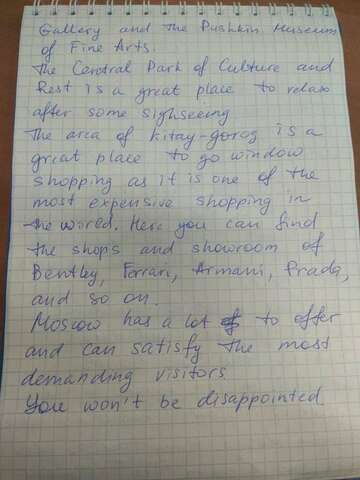 Gallery and the Pushkin Museum
of Fine Arts.
The Central Park of Culture and
Rest is a great place to relax
after some sighseeing
The area of Kitay-gorog is a
great place to go window
shopping as it is one of the
most expensive shopping in
the world. Here you can find
the shops and showroom of
Bentley, Ferrari, Armani, Prada,
and so on.
Moscow has a lot to offer
and can satisfy the most
demanding visitors
You won't be disappointed.